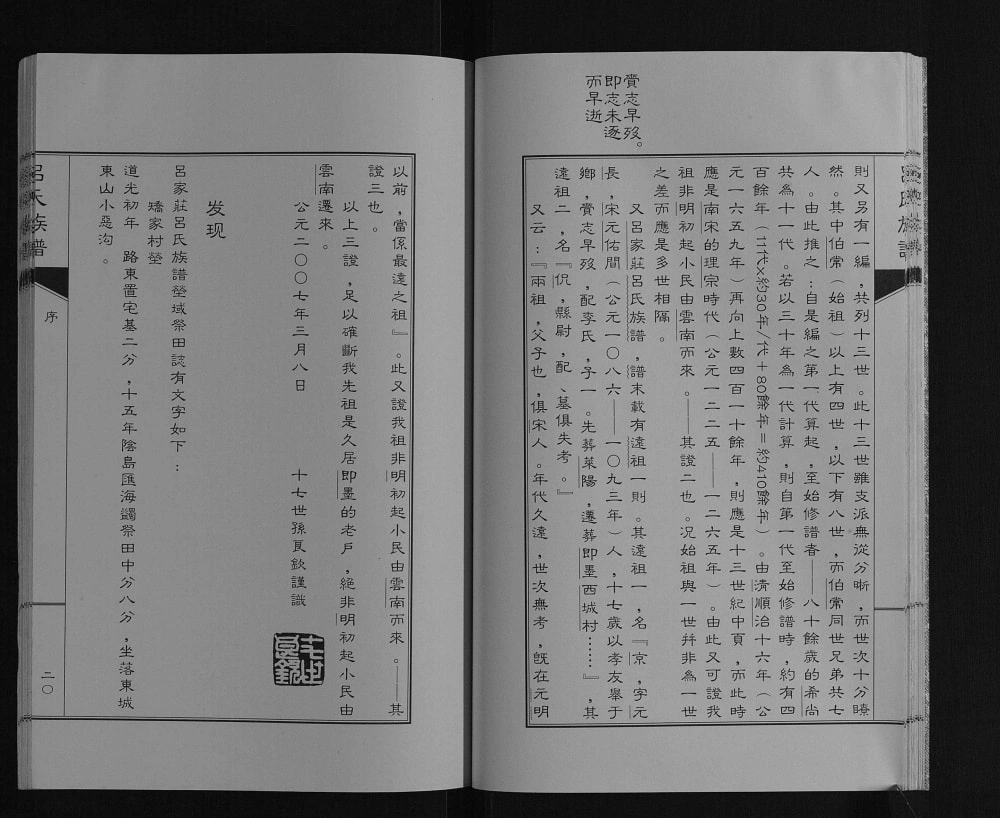 呂氏族譜
則又另有一編，共列十三世。此十三世雖支派無從分晰，而世次十分瞭
然。其中伯常（始祖）以上有四世，以下有八世，而伯常同世兄弟共七
人。由此推之：自是編之第一代算起，至始修譜者——八十餘歲的希尚
共為十一代。若以三十年為一代計算，則自第一代至始修譜時，約有四
百餘年（11代×約30年/代＋80餘年＝約410餘年）。由清順治十六年（公
元一六五九年）再向上數四百一十餘年，則應是十三世紀中頁，而此時
應是南宋的理宗時代（公元一二二五——一二六五年）。由此又可證我
祖非明初起小民由雲南而來。——其證二也。况始祖與一世并非為一世
之差而應是多世相隔。
又呂家莊呂氏族譜，譜末載有遠祖一則。其遠祖一，名『京，字元
長，宋元佑間（公元一〇八六——一〇九三年）人，十七歲以孝友舉于
鄉，賫志早歿，配李氏，子一。先葬萊陽，遷葬即墨西城村……』，其
遠祖二，名『侃，縣尉，配、墓俱失考。』
又云：『兩祖，父子也，俱宋人。年代久遠，世次無考，旣在元明
賫志早歿。
即志未逐
而早逝
以前，當係最遠之祖』。此又證我祖非明初起小民由雲南而來。——其
證三也。
以上三證，足以確斷我先祖是久居即墨的老戶，絕非明初起小民由
雲南遷來。
公元二〇〇七年三月八日
十七世孫良欽謹識
发现
呂家莊呂氏族譜塋域祭田誌有文字如下：
矯家村塋
道光初年 路東置宅基二分，十五年陰島匯海蠲祭田中分八分，坐落東城
東山小惡沟。
呂氏族譜
序
二〇